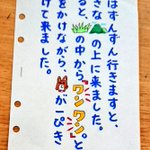 はずんずん行きますと、
きな の上に来ました。
ると の中から「ワンワン」と
をかけながら、 が一ぴき
けて来ました。